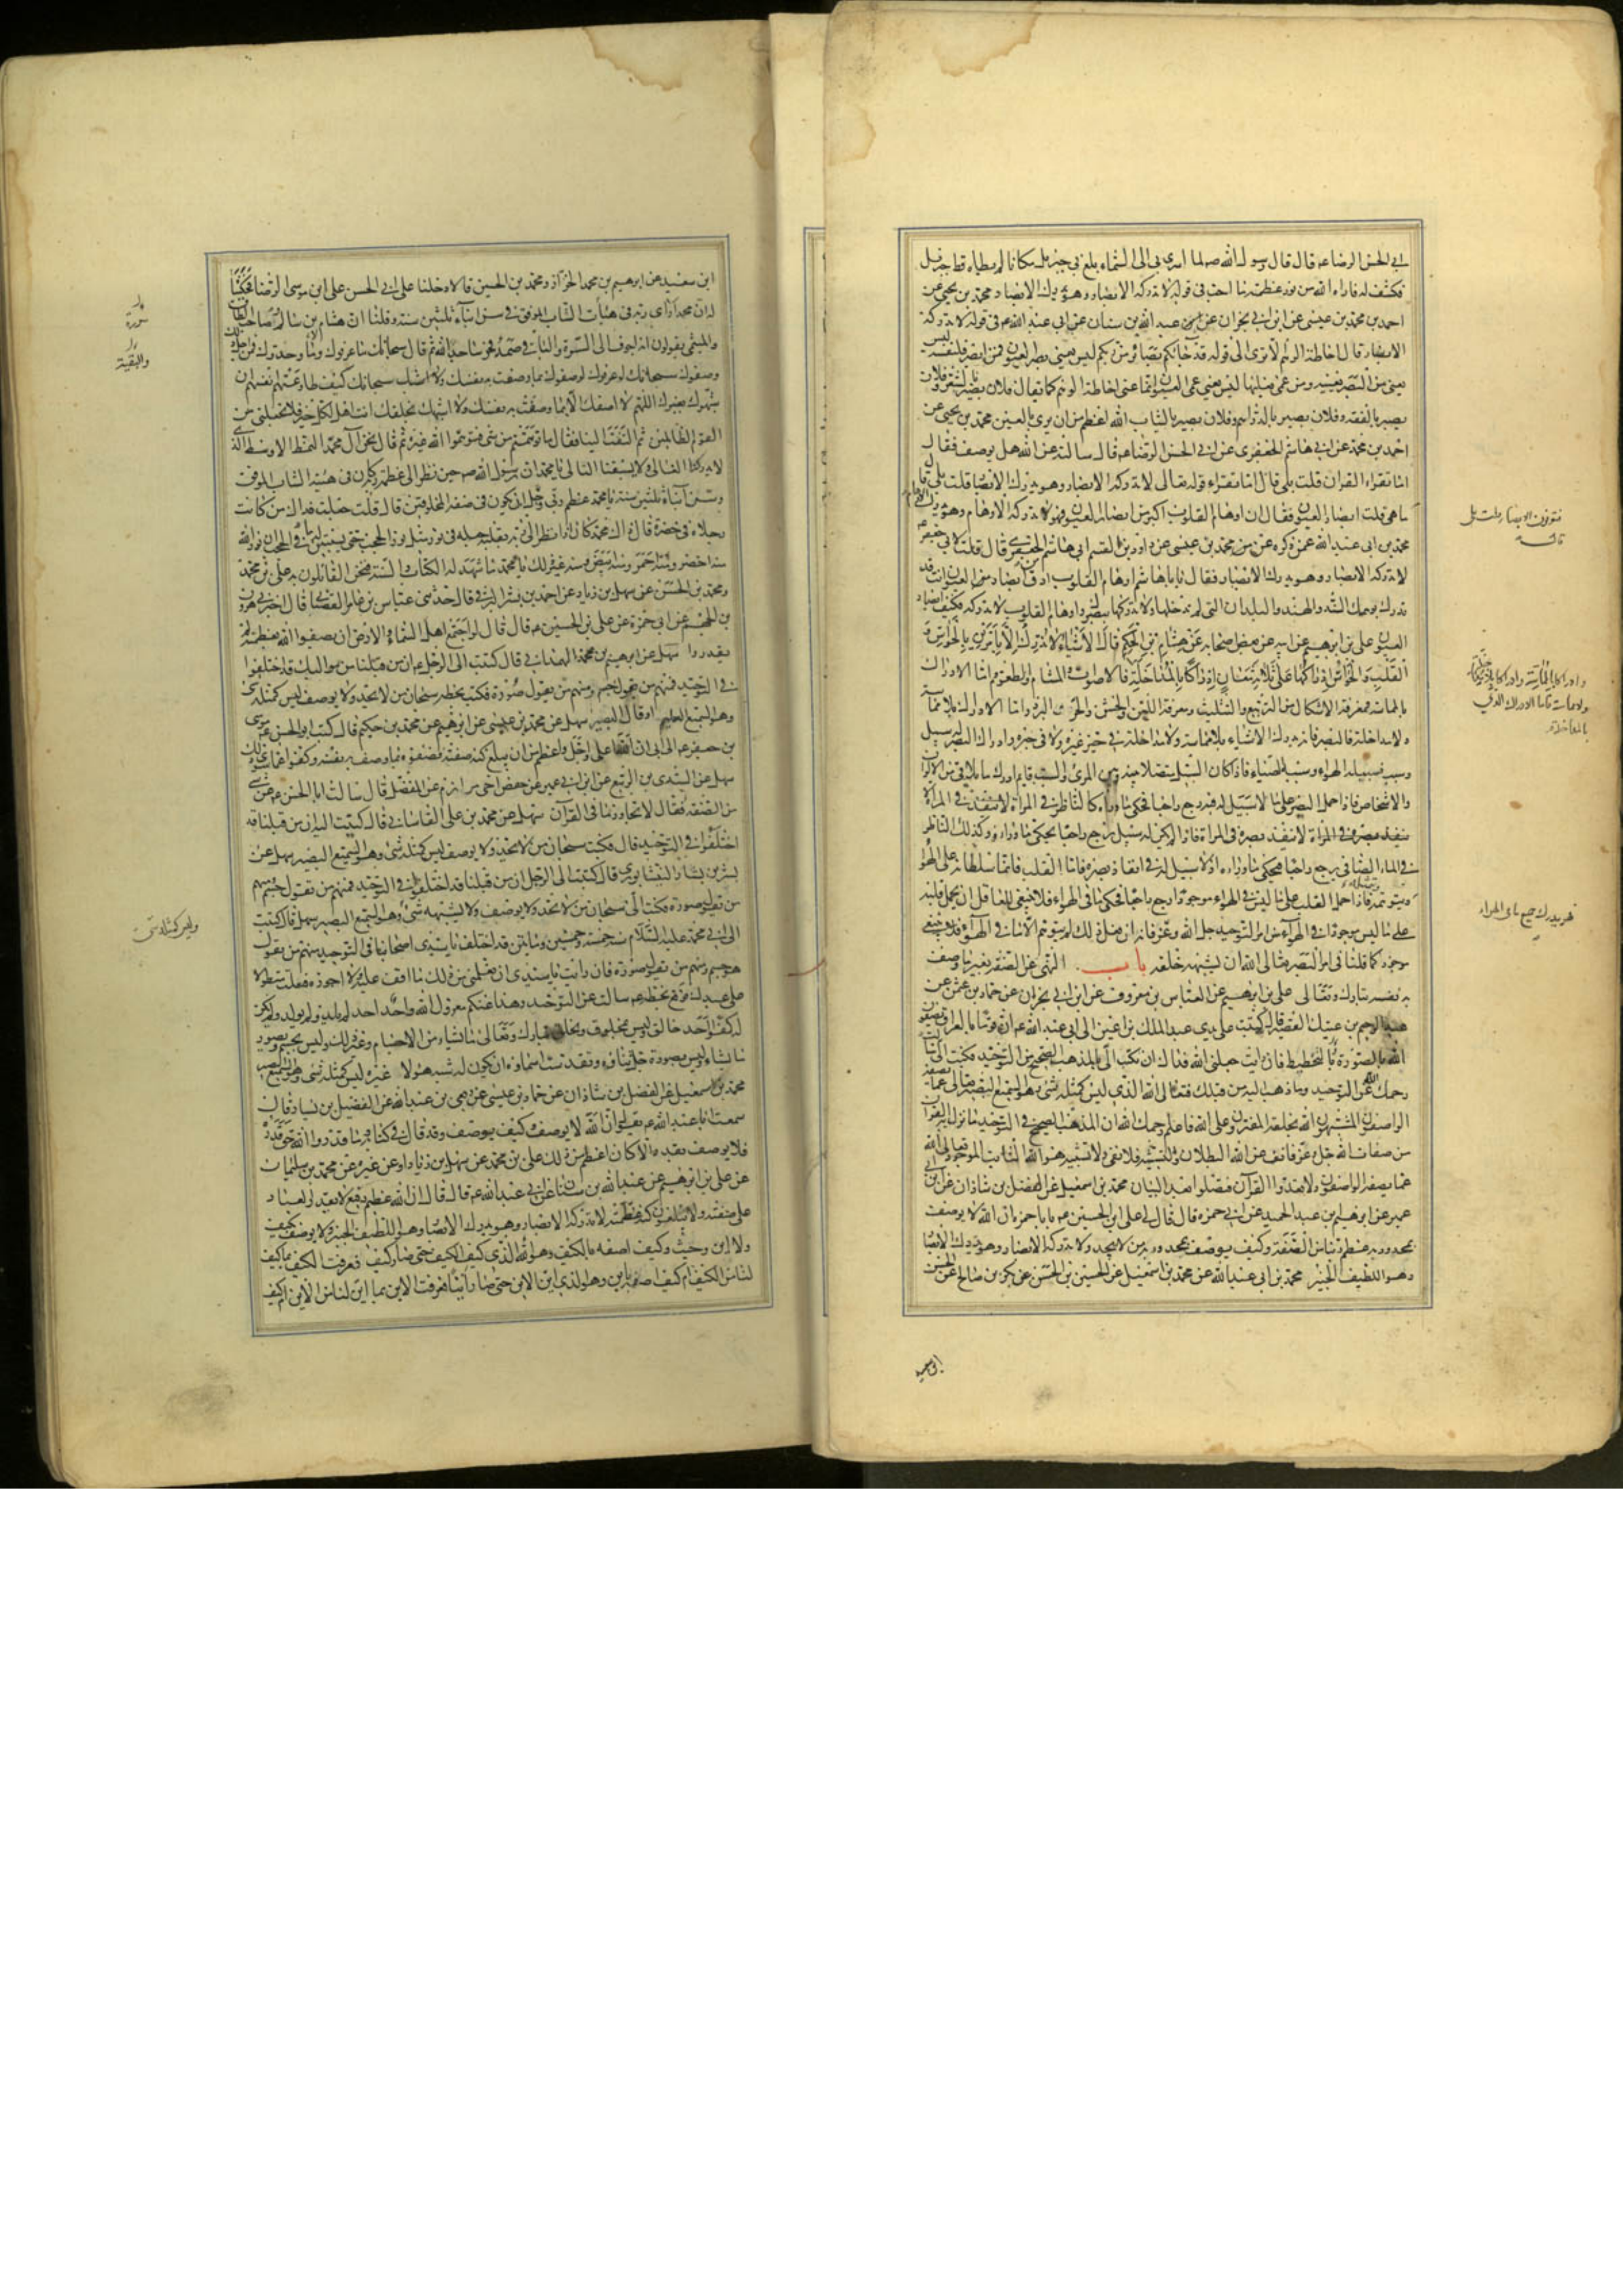 ابي الحسن الرضا عه قال قال رسول الله صه لما اسري بي الى السماء بلغ بي جبرئيل مكانا لم يطاه قط جبرئيل
فكشف له فاراه الله من نور عظمته ما احب في قوله لا تدركه الابصار وهو يدرك الابصار محمد بن يحيى عن
احمد بن محمد بن عيسى عن ابن ابي نجران عن عبد الله بن سنان عن ابي عبد الله عه في قوله لا تدركه
الابصار قال احاطة الوهم الا ترى الى قوله قد جاءكم بصائر من ربكم ليس يعني بصر العيون فمن ابصر فلنفسه ليس
يعني من البصر بعينه ومن عمي فعليها ليس يعني عمى العيون انما عنى احاطة الوهم كما يقال فلان بصير بالشعر وفلان
بصير بالفقه وفلان بصير بالدراهم وفلان بصير بالثياب الله اعظم من ان يرى بالعين محمد بن يحيى عن
احمد بن محمد عن ابي هاشم الجعفري عن ابي الحسن الرضا عه قال سالته عن الله هل يوصف فقال
اما تقراء القران قلت بلى قال اما تقراء قوله تعالى لا تدركه الابصار وهو يدرك الابصار قلت بلى قال
ما هي قلت ابصار العيون فقال ان اوهام القلوب اكبر من ابصار العيون فهو لا تدركه الاوهام وهو يدرك الاوهام
محمد بن ابي عبد الله عمن ذكره عن محمد بن عيسى عن داود بن القسم ابي هاشم الجعفري قال قلت لابي جعفر عه
لا تدركه الابصار وهو يدرك الابصار فقال يا ابا هاشم اوهام القلوب ادق من ابصار العيون انت قد
تدرك بوهمك السند والهند والبلدان التي لم تدخلها ولا تدركها ببصرك واوهام القلوب لا تدركه فكيف ابصار
العيون علي بن ابرهيم عن ابيه عن بعض اصحابه عن هشام بن الحكم قال الاشياء لا تدرك الا بامرين بالحواس و
القلب والحواس ادراكها على ثلاثة معان ادراكا بالمداخلة فالاصوات والمشام والطعوم واما الادراك
بالمماسة فمعرفة الاشكال من التربيع والتثليث ومعرفة اللين والخشن والحر والبرد واما الادراك بلا مماسة
ولا مداخلة فالبصر فانه يدرك الاشياء بلا مماسة ولا مداخلة في حيز غيره ولا في حيزه وادراك البصر له سبيل
وسبب فسبيله الهواء وسببه الضياء فاذا كان السبيل متصلا بينه وبين المرئي والسبب قايم ادرك ما يلاقي من الالوان
والاشخاص فاذا حمل البصر على ما لا سبيل له فيه رجع راجعا فحكى ما وراءه كالناظر في المراة لا ينفذ في المراة
ينفذ بصره في المراة فاذا لم يكن له سبيل رجع راجعا يحكي ما وراءه وكذلك الناظر
في الماء الصافي يرجع راجعا فيحكي ما وراءه اذ لا سبيل له في انفاذ بصره فاما القلب فانما سلطانه على الهواء
ويتوهمه فاذا حمل القلب على ما ليس في الهواء موجودا رجع راجعا فحكى ما في الهواء فلا ينبغي للعاقل ان يحمل قلبه
على ما ليس موجودا في الهواء من امر التوحيد جل الله وعز فانه ان فعل ذلك لم يتوهم الا ما في الهواء
موجود كما قلنا في امر البصر تعالى الله ان يشبهه خلقه باب النهي عن الصفة بغير ما وصف
به نفسه تبارك وتعالى علي بن ابرهيم عن العباس بن معروف عن ابن ابي نجران عن حماد بن عثمن عن
عبد الرحيم بن عتيك القصير قال كتبت على يدي عبد الملك بن اعين الى ابي عبد الله عه ان قوما بالعراق يصفون
الله بالصورة وبالتخطيط فان رايت جعلني الله فداك ان تكتب الي بالمذهب الصحيح من التوحيد فكتب الي سالت
رحمك الله عن التوحيد وما ذهب اليه من قبلك فتعالى الله الذي ليس كمثله شيء وهو السميع البصير تعالى عما يصفه
الواصفون المشبهون الله بخلقه المفترون على الله فاعلم رحمك الله ان المذهب الصحيح في التوحيد ما نزل به القران
من صفات الله جل وعز فانف عن الله البطلان والتشبيه فلا نفي ولا تشبيه هو الله الثابت الموجود تعالى الله
عما يصفه الواصفون ولا تعدوا القرآن فتضلوا بعد البيان محمد بن اسمعيل عن الفضل بن شاذان عن ابن ابي
عمير عن ابرهيم بن عبد الحميد عن ابي حمزه قال قال لي علي بن الحسين عه يا با حمزه ان الله لا يوصف
بمحدوديه عظم ربنا من الصفة وكيف يوصف بمحدوديه من لا يحد ولا تدركه الابصار وهو يدرك الابصار
وهو اللطيف الخبير محمد بن ابي عبد الله عن محمد بن اسمعيل عن الحسين بن الحسن عن بكر بن صالح عن الحسن
ابن سعيد
ابن سعيد عن ابرهيم بن محمد الخزاز ومحمد بن الحسين قالا دخلنا على ابي الحسن علي ابن موسى الرضا فحكينا
له ان محمدا راى ربه في هيئات الشاب الموفق في سن ابناء ثلثين سنه وقلنا ان هشام بن سالم وصاحب الطاق
والميثمي يقولون انه اجوف الى السرة والباقي صمد فخر ساجدا لله ثم قال سبحانك ما عرفوك ولا وحدوك فمن اجل ذلك
وصفوك سبحانك لو عرفوك لوصفوك بما وصفت به نفسك سبحانك كيف طاوعتهم انفسهم ان
يشبهوك بغيرك اللهم لا اصفك الا بما وصفت به نفسك ولا اشبهك بخلقك انت اهل لكل خير فلا تجعلني من
القوم الظالمين ثم التفت الينا فقال ما توهمتم من شيء فتوهموا الله غيره ثم قال نحن آل محمد النمط الاوسط الذي
لا يدركنا الغالي ولا يسبقنا التالي يا محمد ان رسول الله صه حين نظر الى عظمة ربه كان في هيئة الشاب الموفق
وسن ابناء ثلثين سنة يا محمد عظم ربي وجل ان يكون في صفة المخلوقين قال قلت جعلت فداك من كانت
رجلاه في خضرة قال ذاك محمد كان اذا نظر الى ربه بقلبه جعله في نور مثل نور الحجب حتى يستبين له ما في الحجب ان نور الله
منه اخضر ومنه احمر ومنه ابيض ومنه غير ذلك يا محمد ما شهد له الكتاب والسنة فنحن القائلون به علي بن محمد
ومحمد بن الحسن عن سهل بن زياد عن احمد بن بشر البرقي قال حدثني عباس بن عامر القصباني قال اخبرني هرون
بن الجهم عن ابي حمزة عن علي بن الحسين عه قال قال لو اجتمع اهل السماء والارض ان يصفوا الله بعظمته لم
يقدروا سهل عن ابرهيم بن محمد الهمداني قال كتبت الى الرجل عه ان من قبلنا من مواليك قد اختلفوا
في التوحيد فمنهم من يقول جسم ومنهم من يقول صورة فكتب بخطه سبحان من لا يحد ولا يوصف ليس كمثله شيء
وهو السميع العليم او قال البصير سهل عن محمد بن عيسى عن ابرهيم عن محمد بن حكيم قال كتب ابو الحسن موسى
بن جعفر عه الى ابي ان الله اعلى واجل واعظم من ان يبلغ كنه صفته فصفوه بما وصف به نفسه وكفوا عما سوى ذلك
سهل عن السندي بن الربيع عن ابن ابي عمير عن حفص اخي مرازم عن المفضل قال سالت ابا الحسن عه عن شيء
من الصفة فقال لا تجاوز ما في القرآن سهل عن محمد بن علي القاساني قال كتبت اليه ان من قبلنا قد
اختلفوا في التوحيد قال فكتب سبحان من لا يحد ولا يوصف ليس كمثله شيء وهو السميع البصير سهل عن
بشر بن بشار النيشابوري قال كتبت الى الرجل ان من قبلنا قد اختلفوا في التوحيد فمنهم من يقول جسم ومنهم
من يقول صورة فكتب الي سبحان من لا يحد ولا يوصف ولا يشبهه شيء وهو السميع البصير سهل قال كتبت
الى ابي محمد عليه السلام سنه خمسة وخمسين ومايتين قد اختلف يا سيدي اصحابنا في التوحيد منهم من يقول
هو جسم ومنهم من يقول صورة فان رايت يا سيدي ان تعلمني من ذلك ما اقف عليه ولا اجوزه فعلت متطولا
على عبدك فوقع بخطه عه سالت عن التوحيد وهذا عنكم معزول الله واحد احد لم يلد ولم يولد ولم يكن
له كفوا احد خالق وليس بمخلوق يخلق تبارك وتعالى ما يشاء من الاجسام وغير ذلك وليس بجسم ويصور
ما يشاء وليس بصورة جل ثناؤه وتقدست اسماؤه ان يكون له شبه هو لا غيره ليس كمثله شيء وهو السميع البصير
محمد بن اسمعيل عن الفضل بن شاذان عن حماد بن عيسى عن ربعي بن عبد الله عن الفضيل بن يسار قال
سمعت ابا عبد الله عه يقول ان الله لا يوصف وكيف يوصف وقد قال في كتابه وما قدروا الله حق قدره
فلا يوصف بقدر الا كان اعظم من ذلك علي بن محمد عن سهل بن زياد او عن غيره عن محمد بن سليمان
عن علي بن ابرهيم عن عبد الله بن سنان عن ابي عبد الله عه قال قال ان الله عظيم رفيع لا يقدر العباد
على صفته ولا يبلغون كنه عظمته لا تدركه الابصار وهو يدرك الابصار وهو اللطيف الخبير ولا يوصف بكيف
ولا اين وحيث وكيف اصفه بالكيف وهو الذي كيف الكيف حتى صار كيفا فعرفت الكيف بما كيف
لنا من الكيف ام كيف اصفه باين وهو الذي اين الاين حتى صار اينا فعرفت الاين بما اين لنا من الاين ام كيف